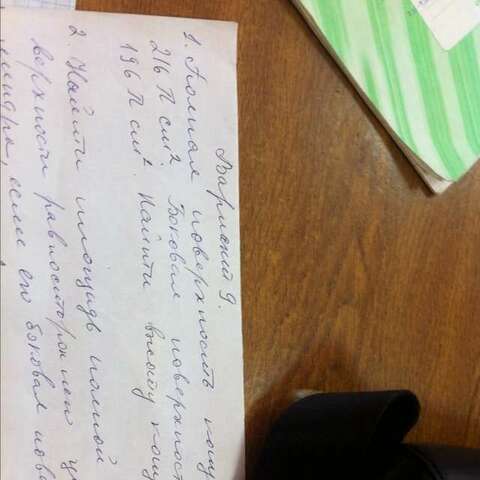 Вариант 9.
1. Полная поверхность кону
216 π см². Боковая поверхност
196 π см². Найти высоту кону
2. Найти площадь полной
верхности равносторонен ци
линдра, если его боковая пове